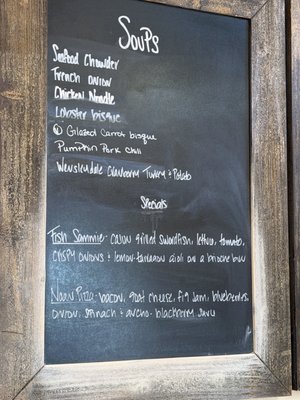 Soups
Seafood Chowder
French onion
Chicken Noodle
Lobster bisque
Glazed Carrot bisque
Pumpkin Pork Chili
Wensleydale Cranberry Turkey + Potato
Specials
Fish Sammie- cajun grilled swordfish, lettuce, tomato,
crispy onions + lemon-tarragon aioli on a brioche bun
Naan Pizza- bacon, goat cheese, fig jam, blueberries,
onion, spinach +